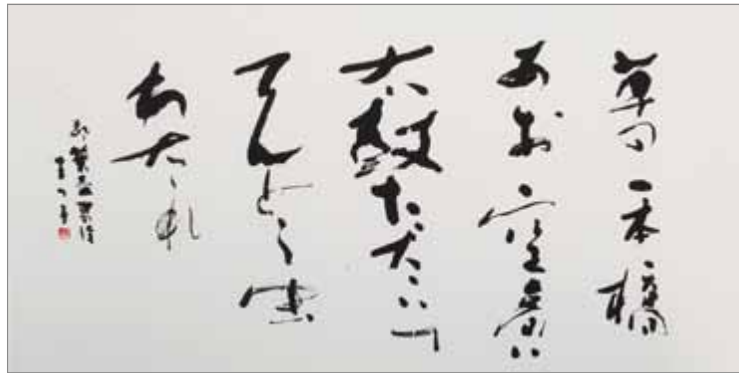 草の一本橋
あお空背負い
太鼓たたいて
てんとう虫
わたれ